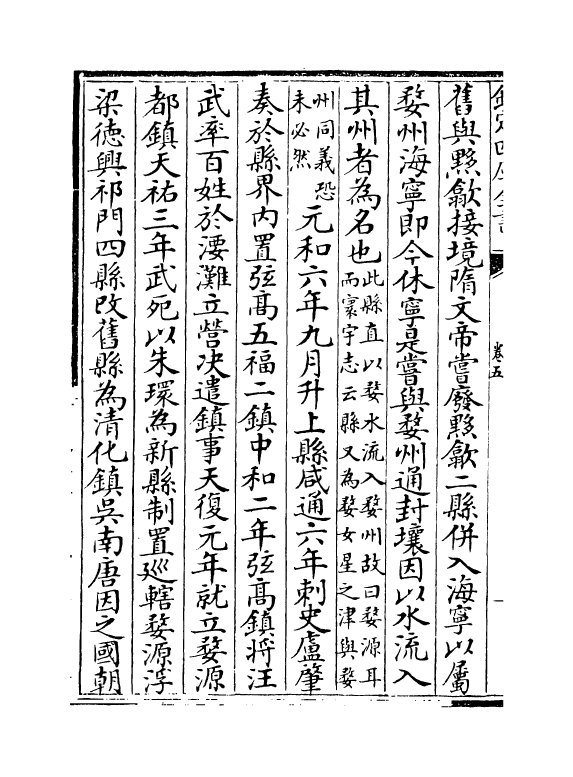 欽定四庫全書
卷五
舊與黟歙接境隋文帝嘗廢黟歙二縣併入海寧以屬
婺州海寧即今休寧是嘗與婺州通封壤因以水流入
其州者為名也
此縣直以婺水流入婺州故曰婺源耳
而寰宇志云縣又為婺女星之津與婺
州同義恐
未必然
元和六年九月升上縣咸通六年刺史盧肇
奏於縣界内置弦髙五福二鎮中和二年弦髙鎮將汪
武率百姓於灘立營决遣鎮事天復元年就立婺源
都鎮天祐三年武死以朱環為新縣制置廵轄婺源浮
梁徳興祁門四縣改舊縣為清化鎮吳南唐因之國朝